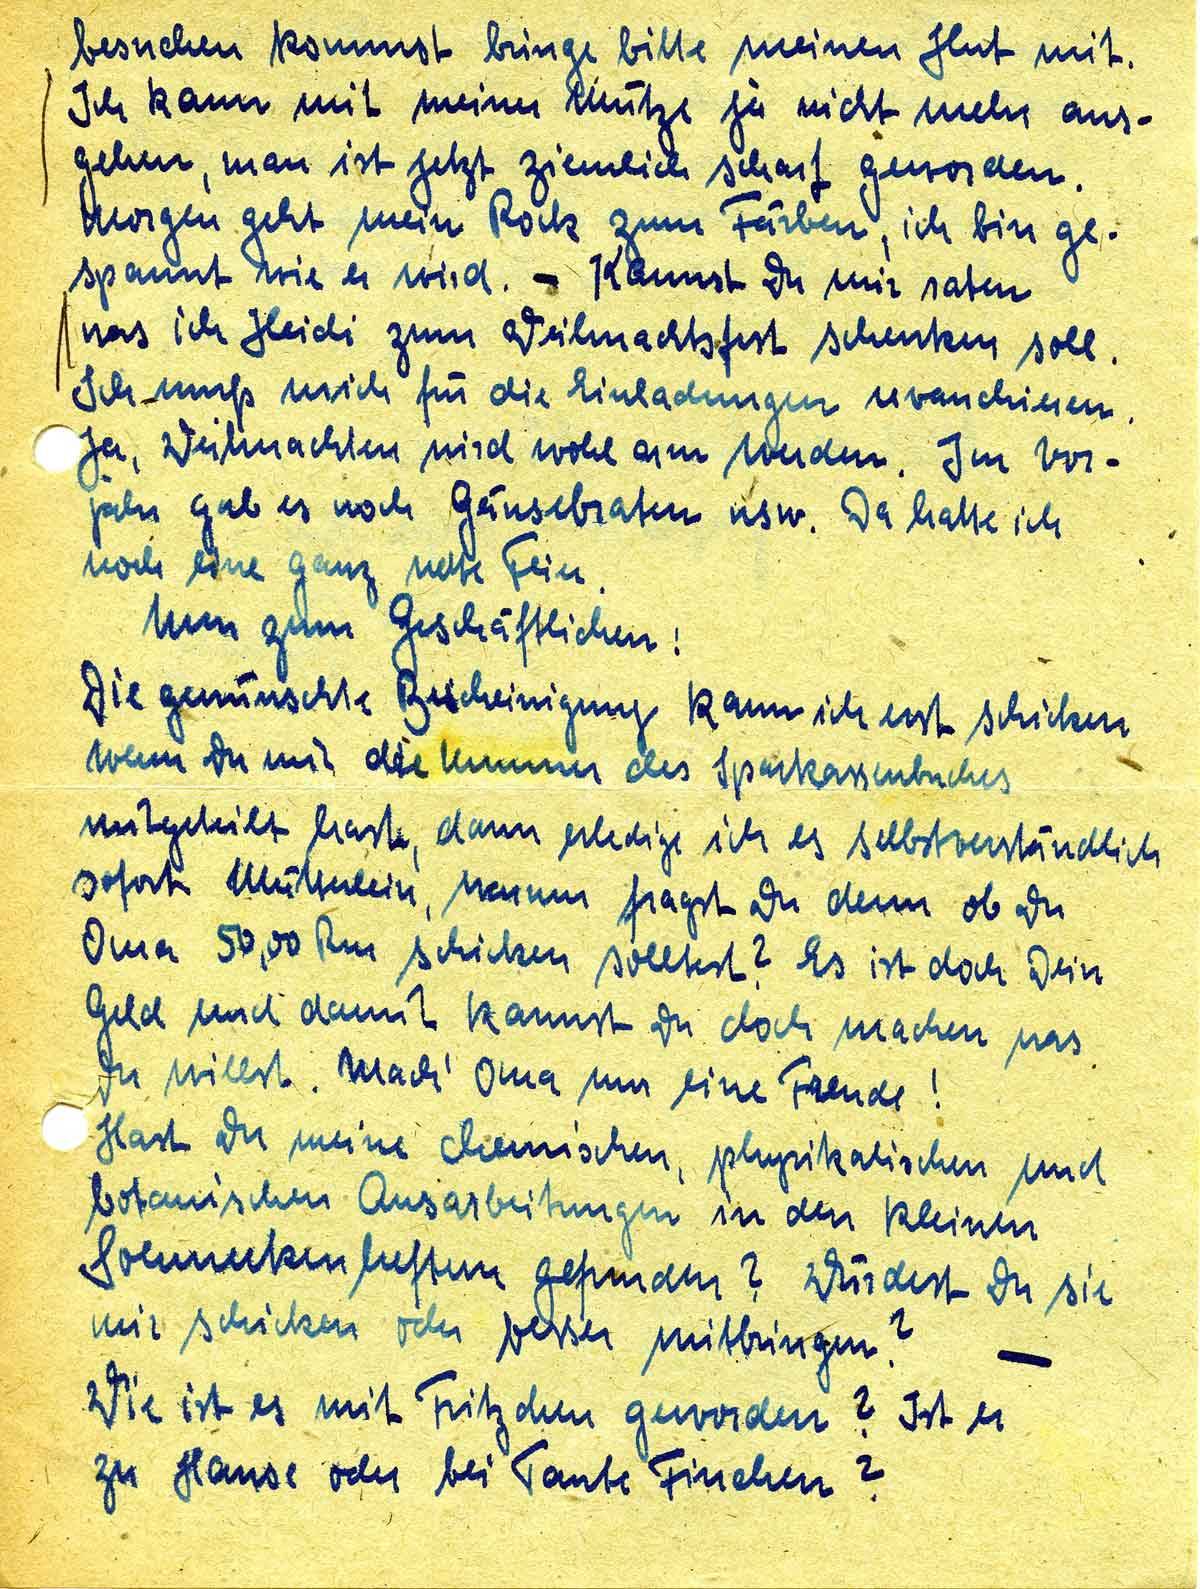 besuchen kommst bringe bitte meinen Hut mit.
Ich kann mit meiner Mütze ja nicht mehr aus-
gehen, man ist jetzt ziemlich scharf geworden.
Morgen geht mein Rock zum Färben, ich bin ge-
spannt wie er wird. - Kannst Du mir raten
was ich Heidi zum Weihnachtsfest schenken soll.
Ich muß mich für die Einladungen revanchieren.
Ja, Weihnachten wird wohl arm werden. Im Vor-
jahr gab es noch Gänsebraten usw. Da hatte ich
noch eine ganz nette Feier.
Nun zum Geschäftlichen!
Die gewünschte Bescheinigung kann ich erst schicken
wenn Du mir die Nummer des Sparkassenbuches
mitgeteilt hast, dann erledige ich es selbstverständlich
sofort. Mütterlein, warum fragst Du denn ob Du
Oma 50,00 Rm schicken solltest? Es ist doch Dein
Geld und damit kannst Du doch machen was
Du willst. Mach' Oma nur eine Freude!
Hast Du meine chemischen, physikalischen und
botanischen Ausarbeitungen in den kleinen
Soenneckenheftern gefunden? Würdest Du sie
mir schicken oder besser mitbringen? —
Wie ist es mit Fritzchen geworden? Ist er
zu Hause oder bei Tante Finchen?